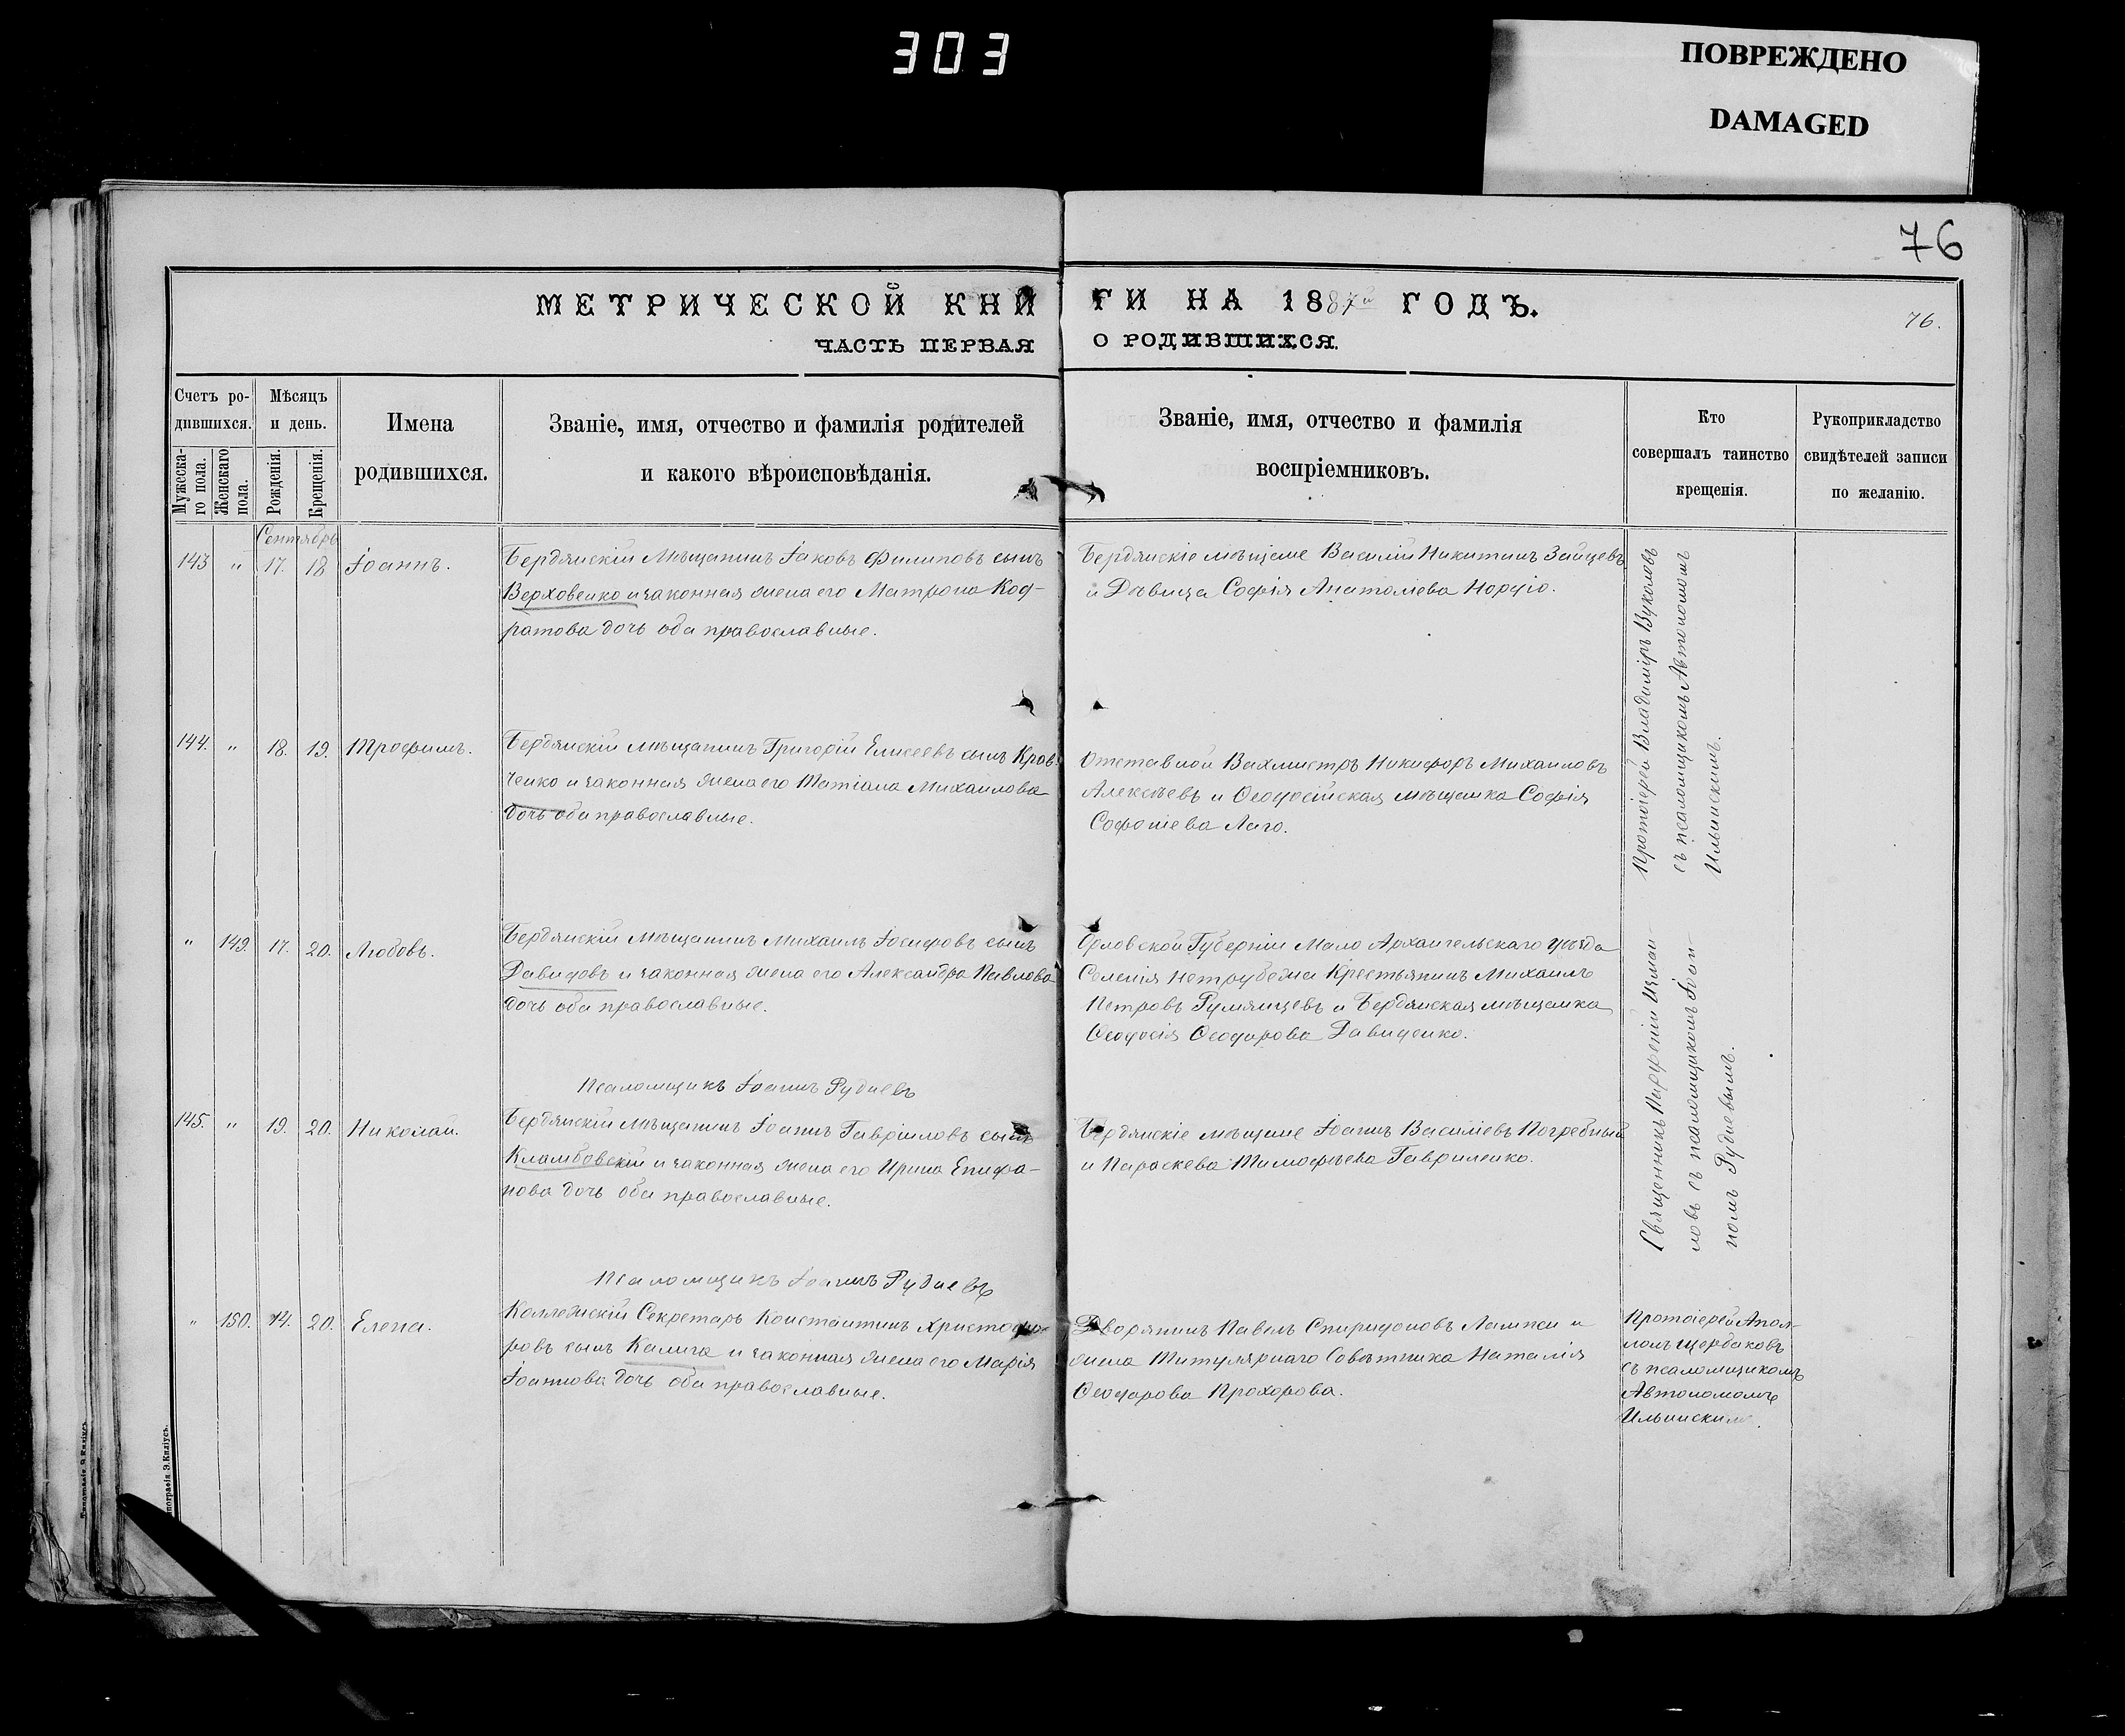 303
ПОВРЕЖДЕНО
DAMAGED
76
МЕТРИЧЕСКОЙ КНИ ГИ НА 1887й ГОДЪ.
ЧАСТЬ ПЕРВАЯ О РОДИВШИХСЯ.
76.
Счетъ ро-
дившихся.
Мужеска-
го пола.
Женскаго
пола.
Мѣсяцъ
и день.
Рожденія.
Крещенія.
Имена
родившихся.
Званіе, имя, отчество и фамилія родителей
и какого вѣроисповѣданія.
Званіе, имя, отчество и фамилія
воспріемниковъ.
Кто
совершалъ таинство
крещенія.
Рукоприкладство
свидѣтелей записи
по желанію.
Сентябрь
143 " 17. 18 Іоаннъ.
Бердянскій Мѣщанинъ Іаковъ Филиповъ сынъ
Верховенко и законная жена его Матрона Код-
ратова дочь оба православные.
Бердянскіе мѣщане Василій Никитинъ Зайцевъ
и Дѣвица Софія Анатоліева
Протоіерей Владиміръ Вуколовъ
съ псаломщикомъ Автономомъ
Ильинскимъ.
144. " 18. 19. Трофимъ.
Бердянскій мѣщанинъ Григорій Елисеевъ сынъ Крав-
ченко и законная жена его Татіана Михаилова
дочь оба православные.
Отставной Вахмистръ Никифоръ Михаиловъ
Алексѣевъ и Ѳеодосійская мѣщанка Софія
" 149. 17. 20. Любовь.
Бердянскій Мѣщанинъ Михаилъ Іосифовъ сынъ
Давидовъ и законная жена его Александра Павлова
дочь оба православные.
Орловской Губерніи Мало Архангельскаго уѣзда
Селенія Нетрубежа Крестьянинъ Михаилъ
Петровъ Румянцевъ и Бердянская мѣщанка
Ѳеодосія Ѳеодорова Давиденко.
Священникъ Порфирій Измаи-
ловъ съ псаломщикомъ Іоан-
номъ Рудневымъ.
Псаломщикъ Іоаннъ Рудневъ
145. " 19. 20. Николай.
Бердянскій мѣщанинъ Іоаннъ Гавріиловъ сынъ
Кламбовскій и законная жена его Ирина Епифа-
нова дочь оба православные.
Бердянскіе мѣщане Іоаннъ Василіевъ Погребный
и Параскева Тимофѣева Гавриленко.
Псаломщикъ Іоаннъ Рудневъ
" 150. 14. 20. Елена.
Коллежскій Секретарь Константинъ Христофо-
ровъ сынъ Калига и законная жена его Марія
Іоаннова дочь оба православные.
Дворянинъ Павелъ Спиридоновъ Лампси и
жена Титулярнаго Совѣтника Наталія
Ѳеодорова Прохорова.
Протоіерей Апол-
лонъ Щербаковъ
съ псаломщикомъ
Автономомъ
Ильинскимъ.